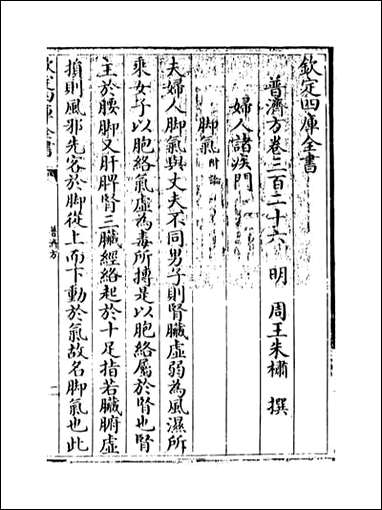 欽定四庫全書
普濟方卷三百二十六　明　周王朱橚　撰
婦人諸疾門
脚氣附論
夫婦人脚氣與丈夫不同男子則腎臟虛弱為風濕所
乘女子以胞絡氣虛為毒所搏是以胞絡屬於腎也腎
主於腰脚又肝脾腎三臟經絡起於十足指若臟腑虛
損則風邪先客於脚從上而下動於氣故名脚氣也此
欽定四庫全書
普濟方